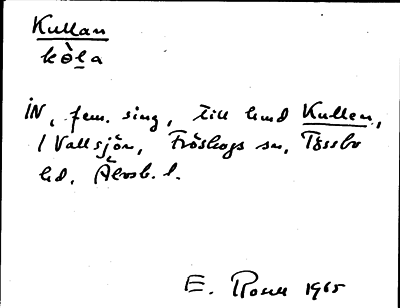 Kullan
kòla
IN, fem. sing, till hmd Kullen,
i Vallsjön, Fröskogs sn, Tössbo
hd, Älvsb. l.
E. Rosell 1965